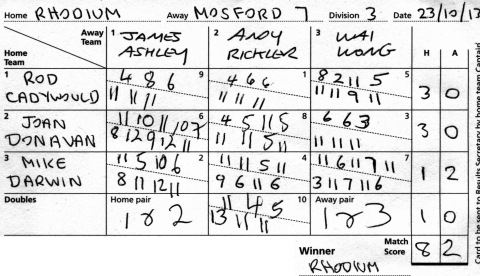 Home RHODIUM Away MOSFORD 7 Division 3 Date 23/10/13
Away Team 1 JAMES ASHLEY 2 ANDY RICHLER 3 WAI WONG H A
Home Team
1 ROD CADYWOULD
4 8 6 9 4 6 6 1 8 2 11 5 5
11 11 11 11 11 11 11 11 9 11 3 0
2 JOAN DONAVAN
11 10 11 10 7 6 4 5 11 5 8 6 6 3 3
8 12 9 12 11 11 11 5 11 11 11 11 3 0
3 MIKE DARWIN
11 5 10 6 2 11 11 5 11 4 11 6 11 7 11 7
8 11 12 11 9 6 11 6 3 11 7 11 6 1 2
Doubles Home pair 1 & 2 11 4 5 10 Away pair 1 & 3 1 0
13 11 11
Winner RHODIUM Match Score 8 2
Card to be sent to Results Secretary by home team Captain